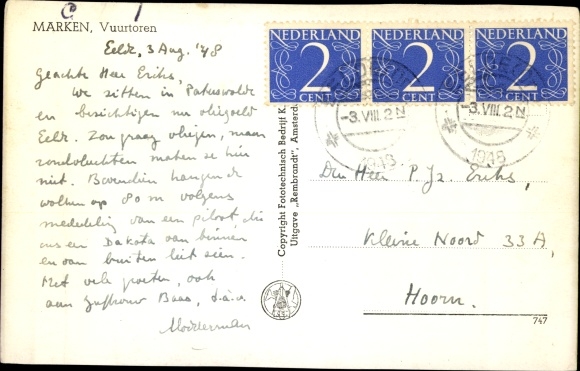 MARKEN, Vuurtoren
Eelde, 3 Aug. '48
Geachte Heer Eriks,
We zitten in Paterswolde
en bezichtigen nu vliegveld
Eelde. Zou graag vliegen, maar
rondvluchten maken ze hier
niet. Bovendien hangende
wolken op 80 m volgens
mededeling van een piloot, die
ons een Dakota van binnen
en van buiten liet zien.
Met vele groeten, ook
aan Juffrouw Baas, t.à.v.
Modderman
NEDERLAND NEDERLAND NEDERLAND
2 2 2
CENT CENT CENT
-3.VIII.2N
-3.VIII.2N
1948
1948
Copyright Fototechnisch Bedrijf K.
Uitgave „Rembrandt", Amsterd
Den Heer P. Jz. Eriks,
Kleine Noord 33A,
Hoorn.
747